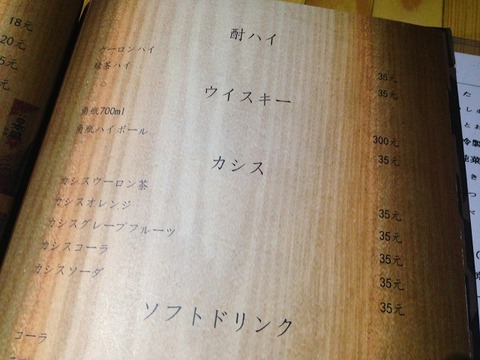 18元
20元
5元
元
酎ハイ
ウーロンハイ 35元
緑茶ハイ 35元
ウイスキー
角瓶700ml 300元
角瓶ハイボール 35元
カシス
カシスウーロン茶 35元
カシスオレンジ 35元
カシスグレープフルーツ 35元
カシスコーラ 35元
カシスソーダ 35元
ソフトドリンク
コーラ